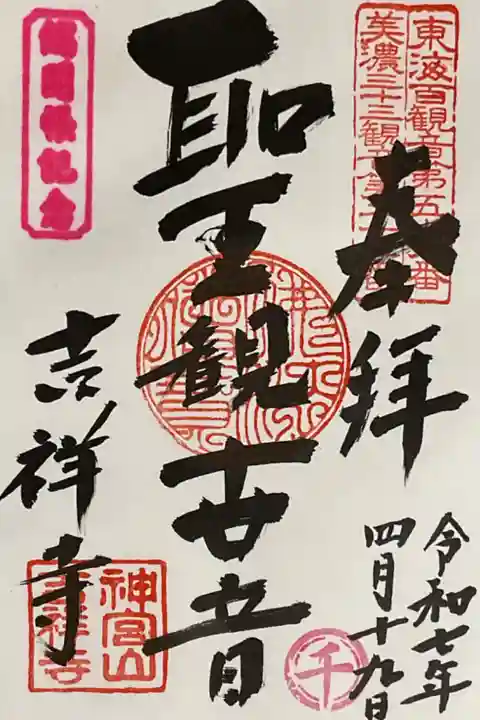 奉拝
令和七年
四月十九日
聖観世音
吉祥寺
東海百観音第五
番
美濃三十三観音
神宮山
吉祥寺
千